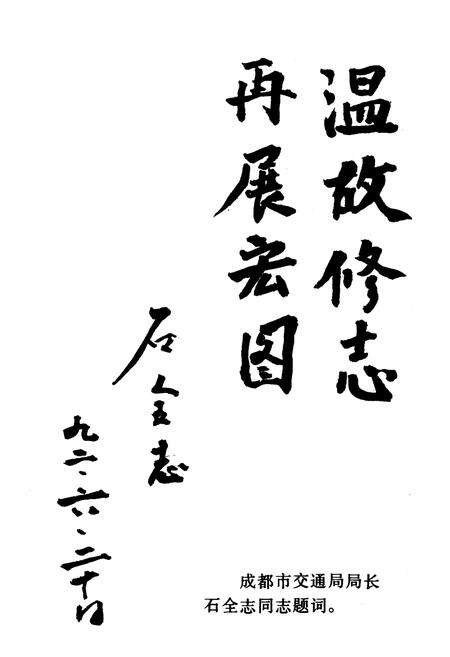 温故修志
再展宏图
石全志
九二·六·二十日
成都市交通局局长
石全志同志题词。